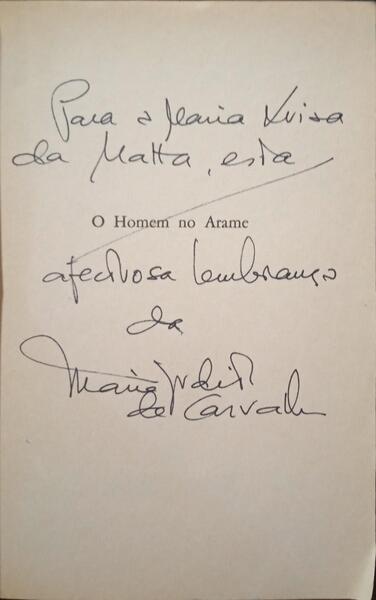 Para a Maria Luisa
da Matta, esta
O Homem no Arame
afectuosa lembrança
da
Maria Judite
de Carvalho